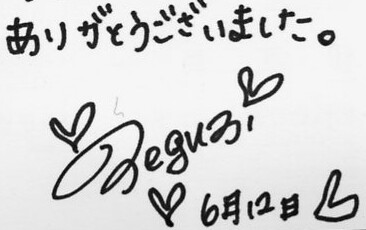 ありがとうございました。
Megumi
6月12日